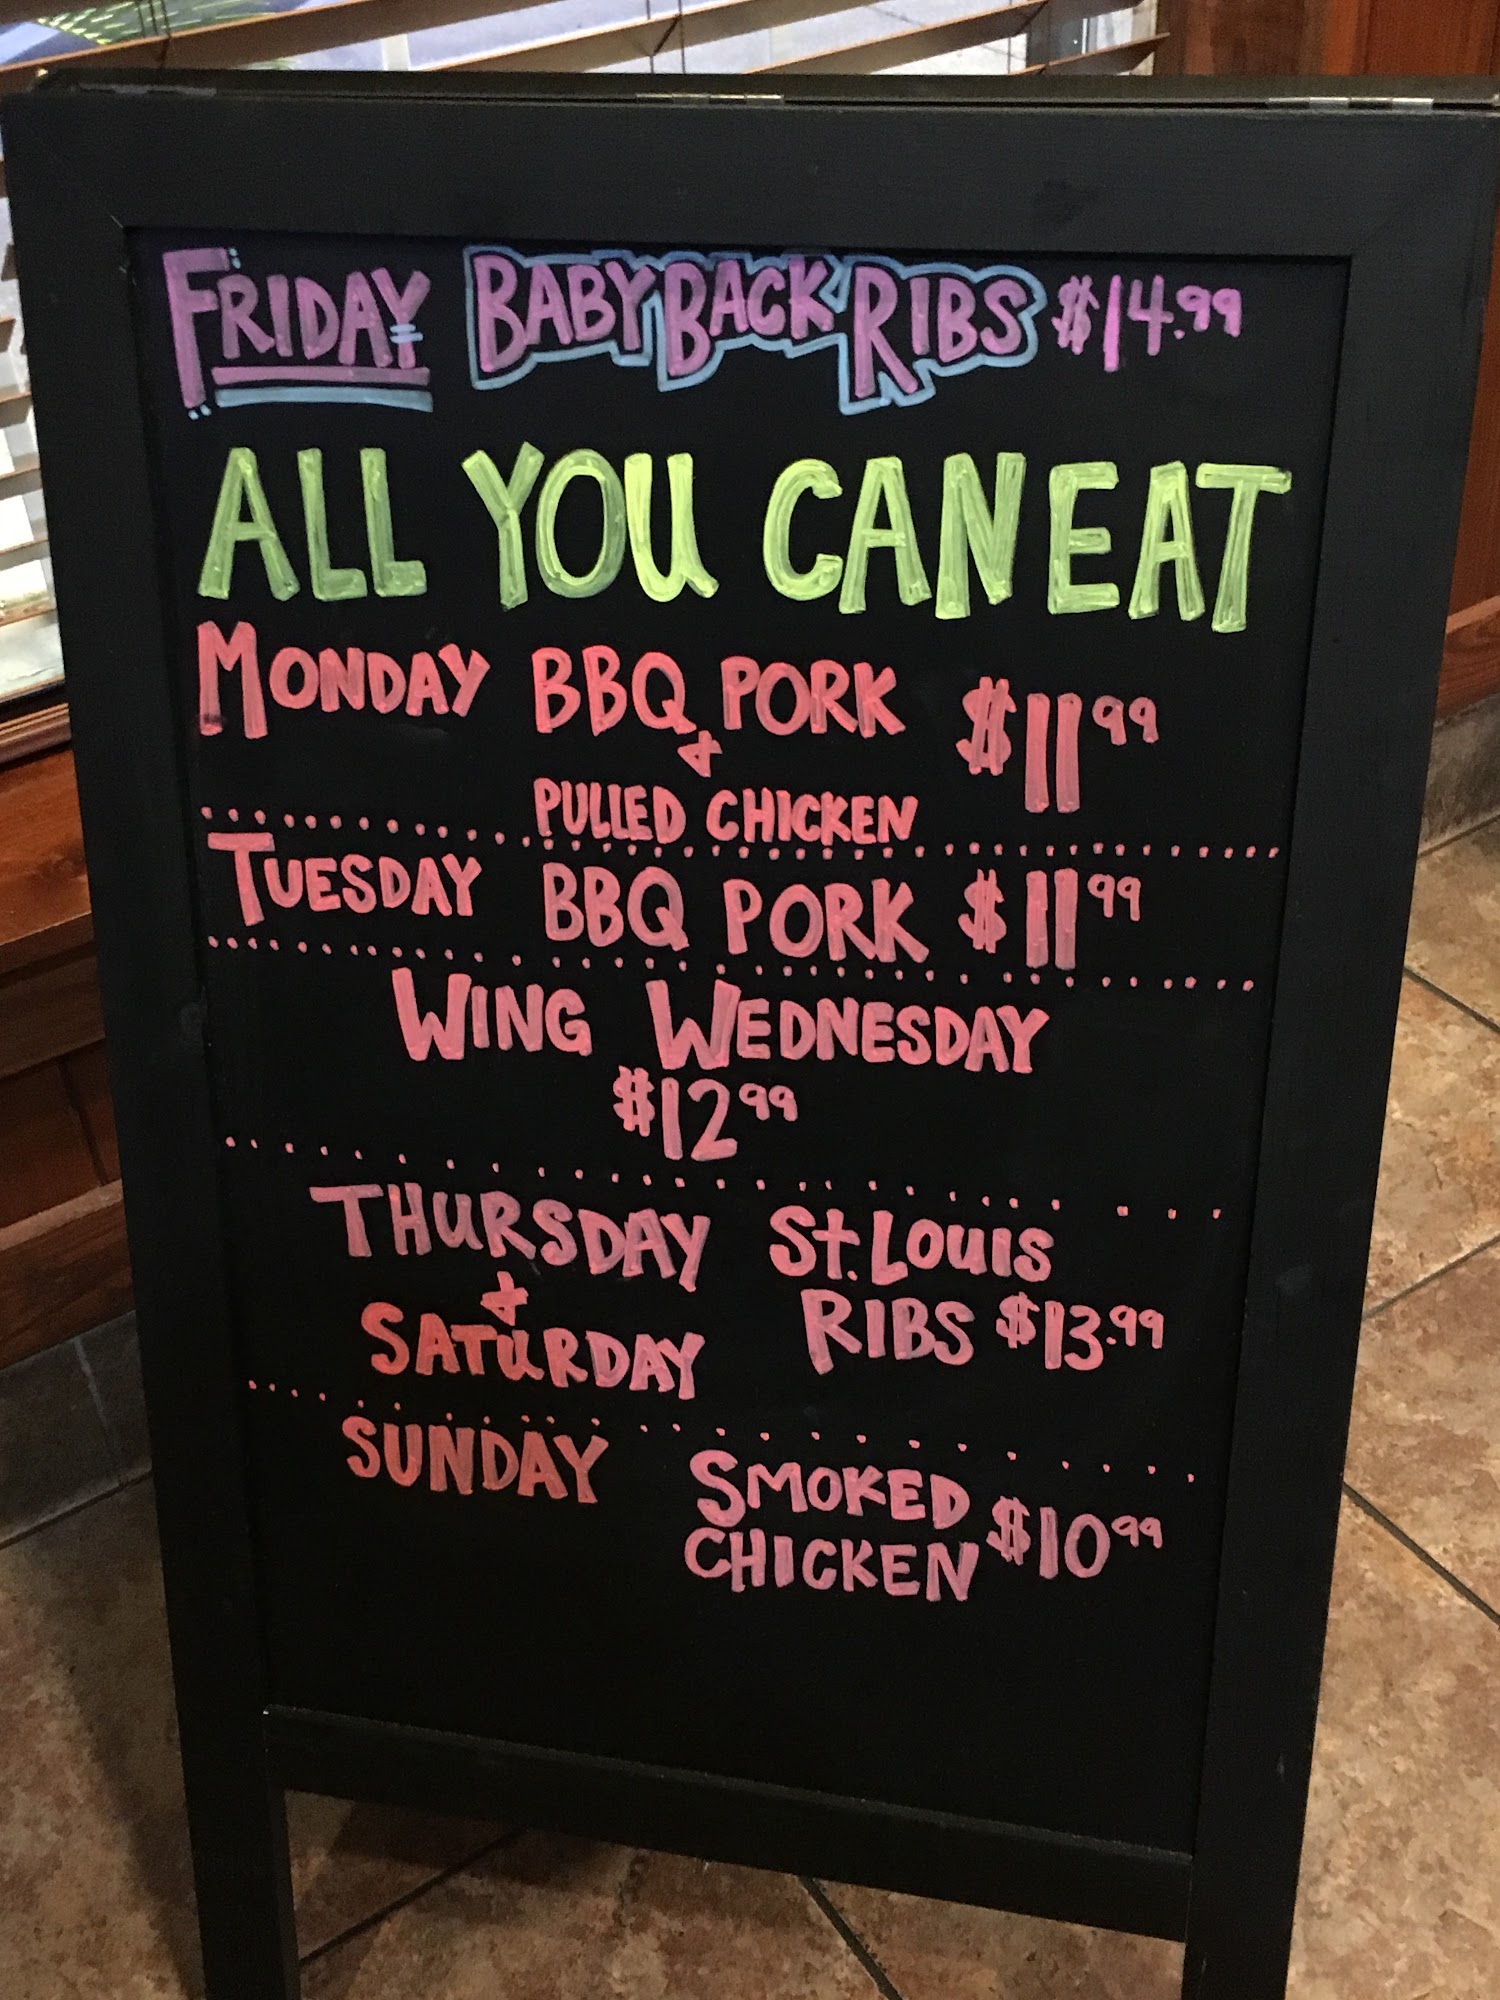 FRIDAY BABY BACK RIBS $14.99
ALL YOU CAN EAT
MONDAY BBQ PORK $11.99
&
PULLED CHICKEN
TUESDAY BBQ PORK $11.99
WING WEDNESDAY
$12.99
THURSDAY St. LOUIS
&
SATURDAY RIBS $13.99
SUNDAY SMOKED
CHICKEN $10.99